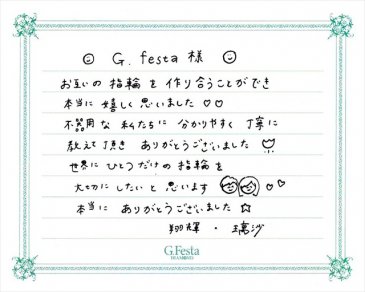 G. festa 様
お互いの 指輪を 作り合うことができ
本当に 嬉しく 思いました ♡♡
不器用な 私たちに 分かりやすく 丁寧に
教えて頂き ありがとうございました
世界に ひとつだけの 指輪を
大切に したいと 思います ♡♡
本当に ありがとうございました ☆
翔輝 ・ 璃沙
G.Festa
DIAMOND